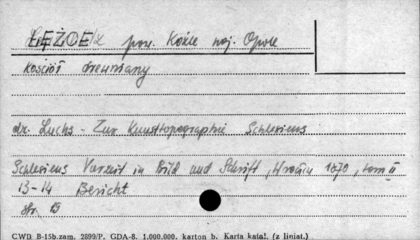 ŁĘŻCE pow. Koźle woj. Opole
Kościół drewniany
dr. Luchs - Zur Kunsttopographie Schlesiens
Schlesiens Vorzeit in Bild und Schrift, Wrocław 1870, tom II
13-14 Bericht
str. 13
CWD B-15b.zam. 2899/P. GDA-8. 1.000.000. karton b. Karta katal. (z liniat.)